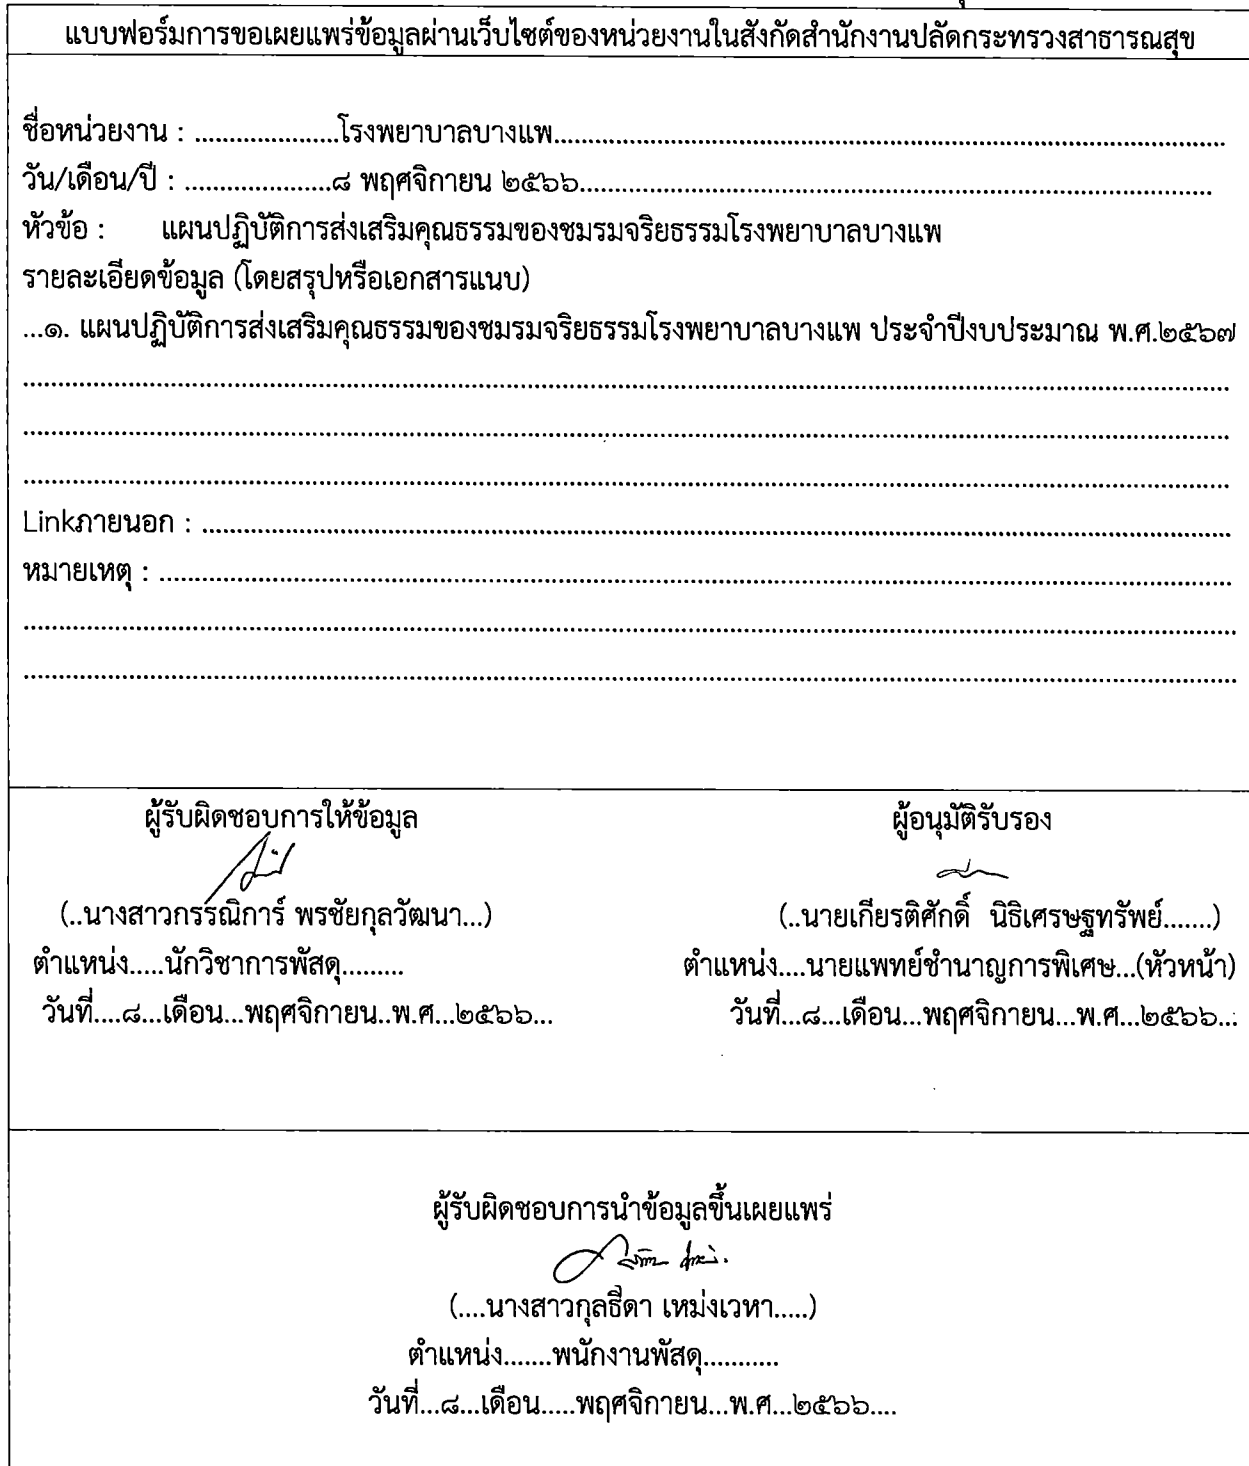 แบบฟอร์มการขอเผยแพร่ข้อมูลผ่านเว็บไซต์ของหน่วยงานในสังกัดสำนักงานปลัดกระทรวงสาธารณสุข
ชื่อหน่วยงาน : .....................โรงพยาบาลบางแพ.....................
วัน/เดือน/ปี : .....................๘ พฤศจิกายน ๒๕๖๖.....................
หัวข้อ : แผนปฏิบัติการส่งเสริมคุณธรรมของชมรมจริยธรรมโรงพยาบาลบางแพ
รายละเอียดข้อมูล (โดยสรุปหรือเอกสารแนบ)
...๑. แผนปฏิบัติการส่งเสริมคุณธรรมของชมรมจริยธรรมโรงพยาบาลบางแพ ประจำปีงบประมาณ พ.ศ.๒๕๖๗
Linkภายนอก : .....................
หมายเหตุ : .....................
ผู้รับผิดชอบการให้ข้อมูล
(..นางสาวกรรณิการ์ พรชัยกุลวัฒนา...)
ตำแหน่ง.....นักวิชาการพัสดุ.........
วันที่....๘...เดือน...พฤศจิกายน..พ.ศ...๒๕๖๖...
ผู้อนุมัติรับรอง
(..นายเกียรติศักดิ์ นิธิเศรษฐทรัพย์.......)
ตำแหน่ง....นายแพทย์ชำนาญการพิเศษ...(หัวหน้า)
วันที่...๘...เดือน...พฤศจิกายน...พ.ศ...๒๕๖๖...
ผู้รับผิดชอบการนำข้อมูลขึ้นเผยแพร่
(....นางสาวกุลธิดา เหม่งเวหา.....)
ตำแหน่ง.......พนักงานพัสดุ...........
วันที่...๘...เดือน.....พฤศจิกายน...พ.ศ...๒๕๖๖....